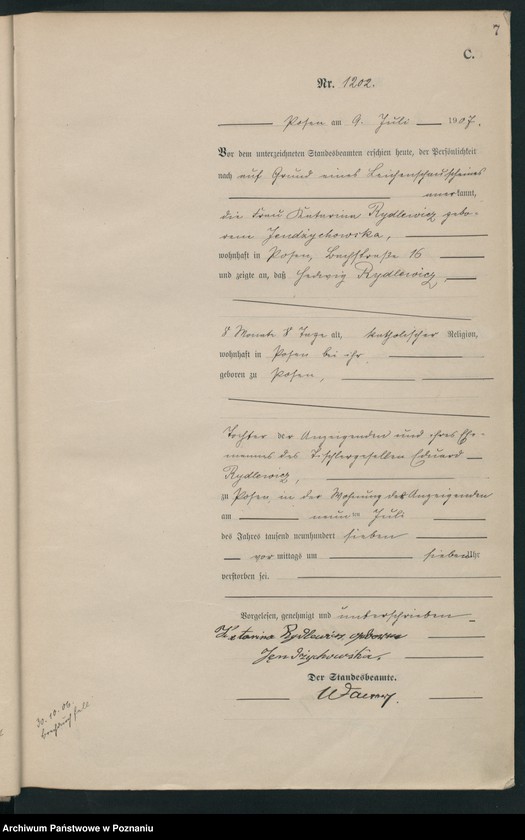 7
C.
Nr. 1202.
Posen am 9. Juli 1907.
Vor dem unterzeichneten Standesbeamten erschien heute, der Persönlichkeit
nach auf Grund eines Leichenschauscheines
anerkannt,
die Frau Katarina Rydlewicz gebo-
rene Jendżychowska,
wohnhaft in Posen, Bachstraße 16
und zeigte an, daß Hedwig Rydlewicz,
8 Monate 8 Tage alt, katholischer Religion,
wohnhaft in Posen bei ihr
geboren zu Posen,
Tochter der Anzeigenden und ihres Ehe-
mannes des Tischlergesellen Eduard
Rydlewicz,
zu Posen, in der Wohnung der Anzeigenden
am neunten Juli
des Jahres tausend neunhundert sieben
vormittags um sieben Uhr
verstorben sei.
Vorgelesen, genehmigt und unterschrieben
Katarina Rydlewicz geborene
Jendżychowska.
Der Standesbeamte.
30.10.06
Archiwum Państwowe w Poznaniu